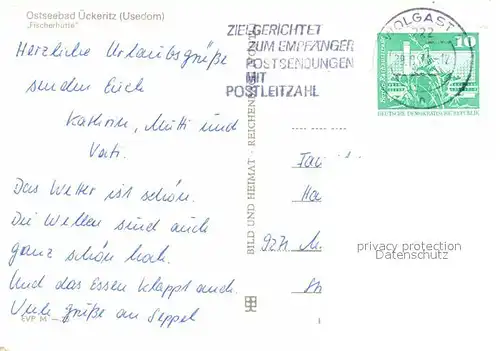 Ostseebad Ückeritz (Usedom)
„Fischerhütte"
Herzliche Urlaubsgrüße
senden Euch
Kathrin, Mutti und
Vati.
Das Wetter ist schön.
Die Wellen sind auch
ganz schön hoch.
Und das Essen klappt auch.
Viele Grüße an Seppel
EVP M
BILD UND HEIMAT · REICHENBACH
ZIELGERICHTET
ZUM EMPFÄNGER
POSTSENDUNGEN
MIT
POSTLEITZAHL
WOLGAST
222
10
DEUTSCHE DEMOKRATISCHE REPUBLIK
Fam
Ha
M
privacy protection
Datenschutz